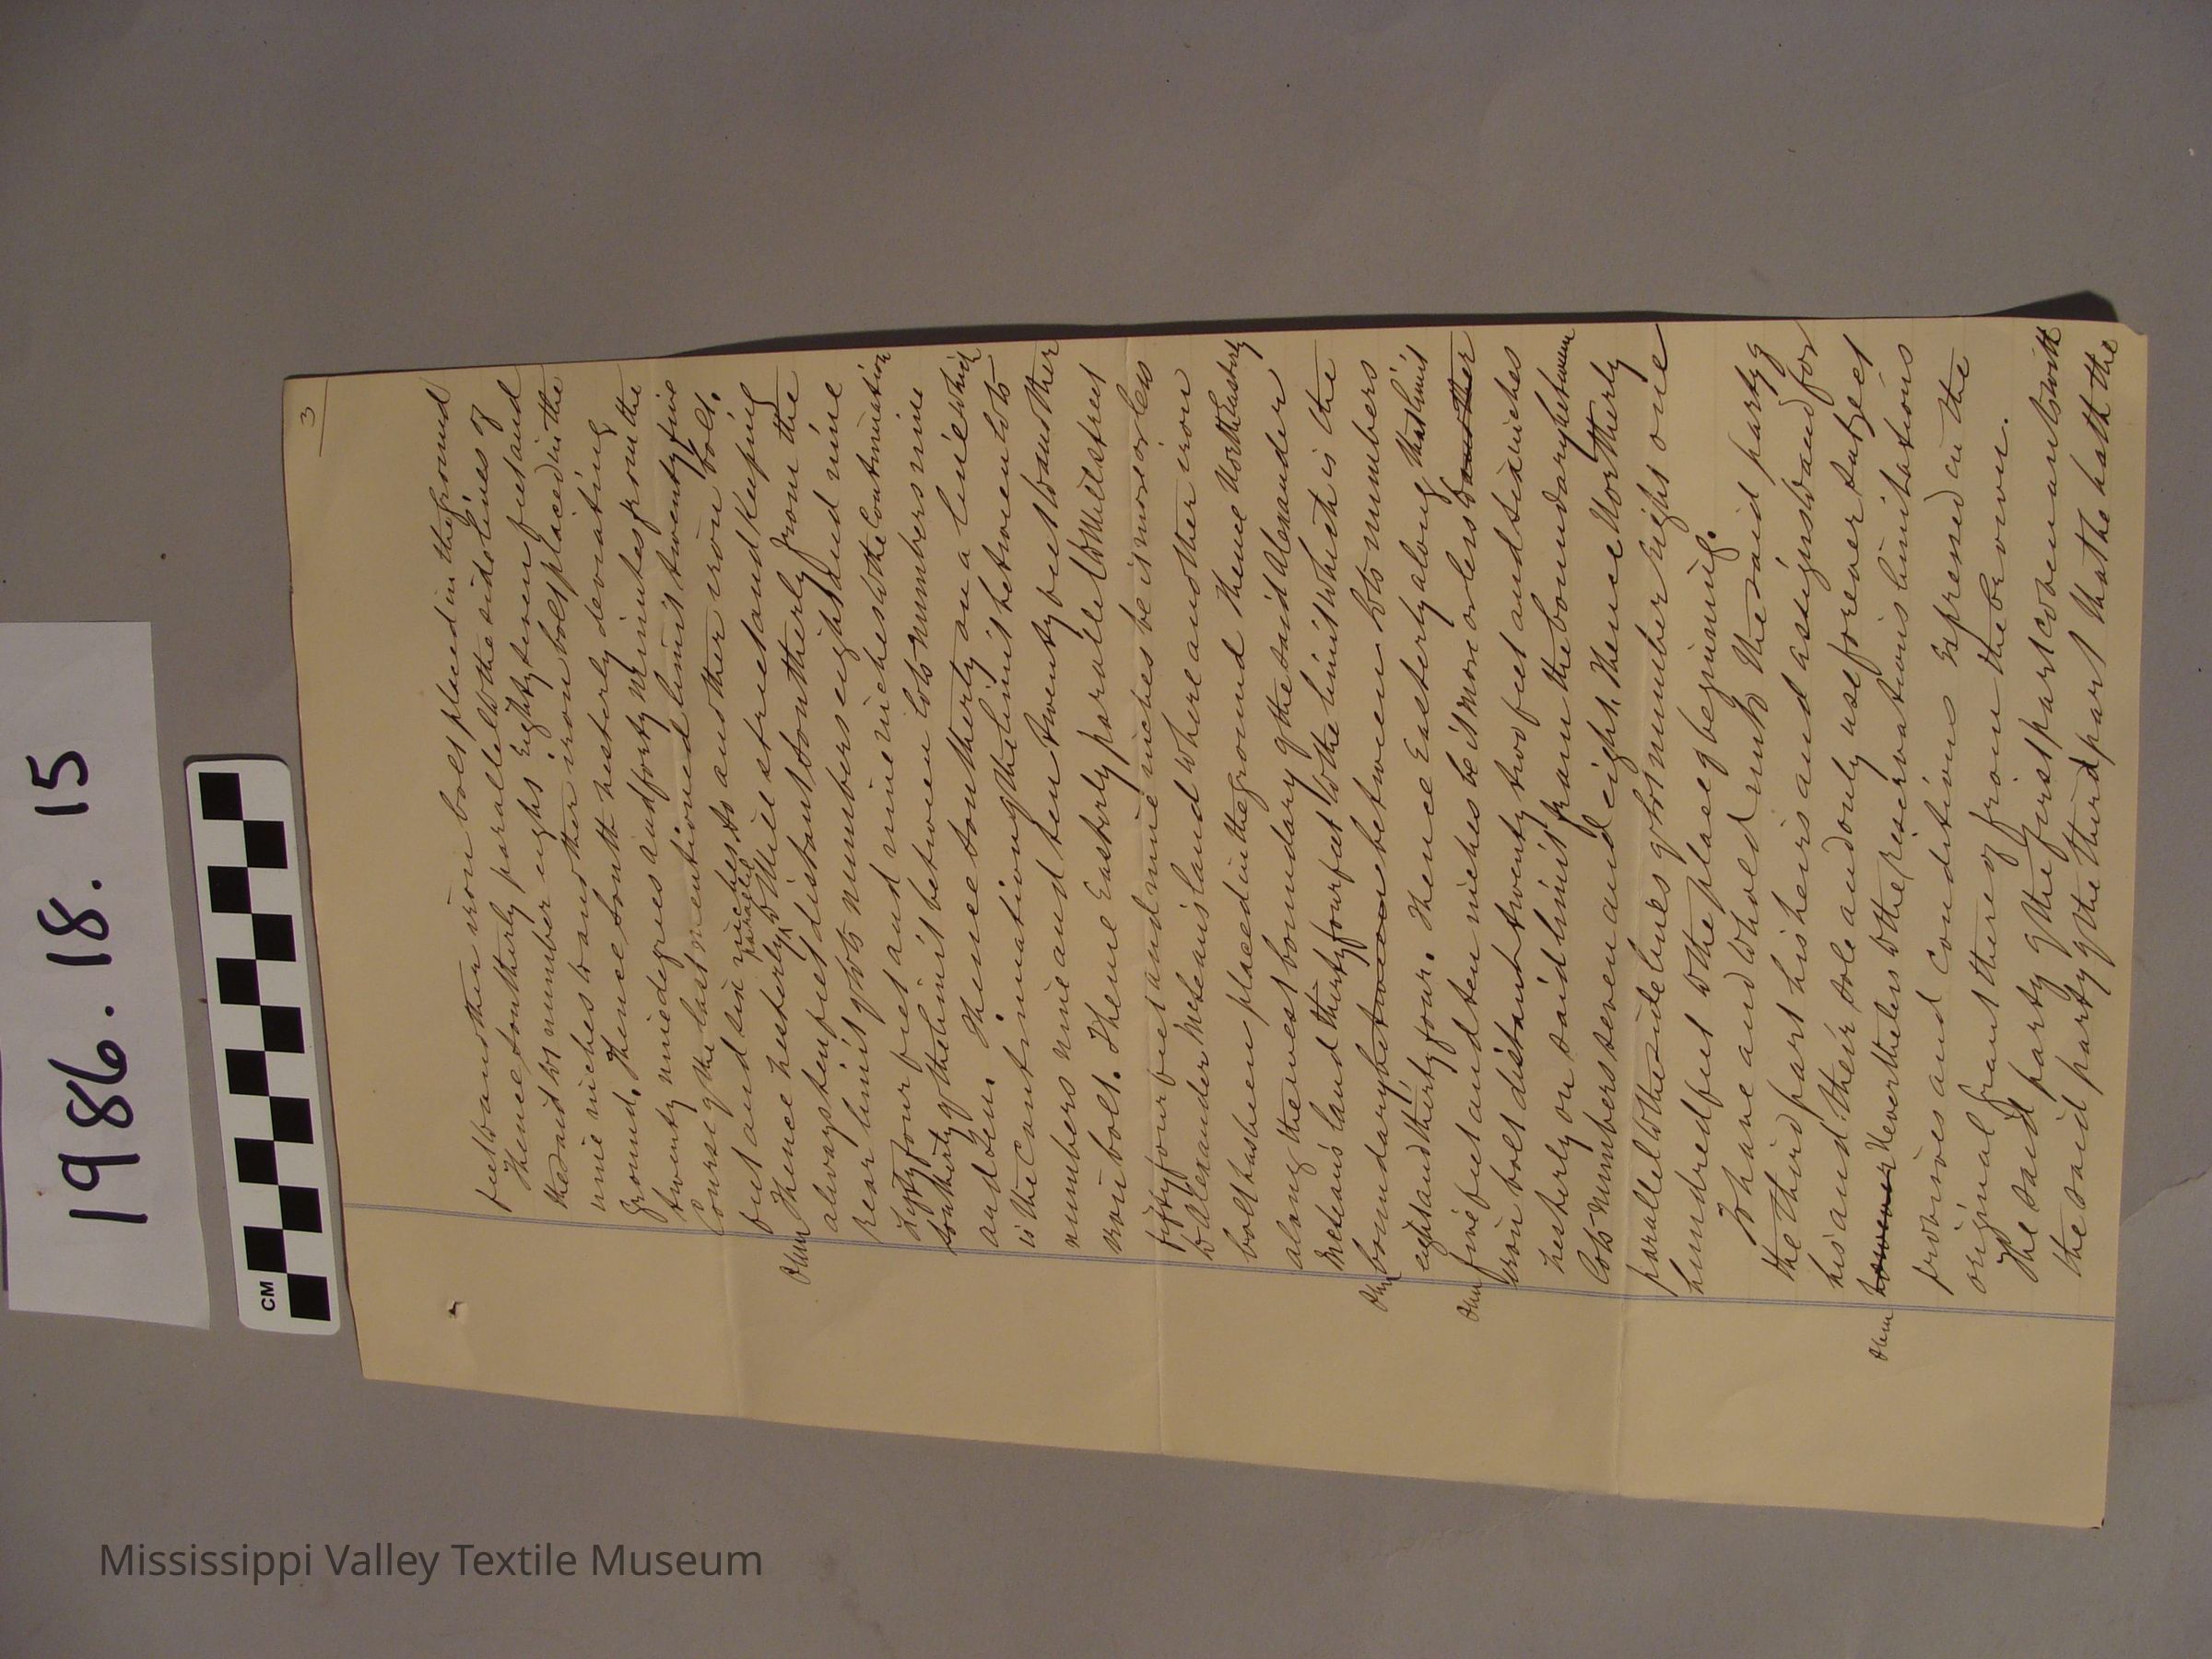 1986. 18. 15
CM
3
feet to another iron bolt placed in the ground
Thence southerly parallel to the side lines of
the said lot number eight Eighty seven feet and
nine inches to another iron bolt placed in the
ground. Thence south westerly deviating
twenty nine degrees and forty minutes from the
Course of the last mentioned limit twenty five
feet and six inches to another iron bolt.
Thence westerly parallel to Mill street and keeping
always ten feet distant southerly from the
rear limit of lots numbers eight and nine
sixty four feet and nine inches to the continuation
southerly of the limit between lots numbers nine
and ten. Thence southerly on a line which
is the continuation of the limit between lots
numbers nine and ten twenty feet to another
iron bolt. Thence Easterly parallel to Mill street
fifty four feet and nine inches be it more or less
to Alexander McLean's land where another iron
bolt has been placed in the ground Thence Northeasterly
along the west boundary of the said Alexander
McLean's land thirty four feet to the limit which is the
boundary between between lots numbers
eight and thirty four. Thence Easterly along that limit
five feet and ten inches be it more or less to another
iron bolt distant twenty two feet and six inches
westerly on said limit from the boundary between
lots numbers seven and eight. Thence Northerly
parallel to the side lines of lot number eight one
hundred feet to the place of beginning.
To have and to hold unto the said party of
the third part his heirs and assigns to and for
his and their sole and only use forever subject
however Nevertheless to the reservations limitations
provisoes and conditions expressed in the
original grant thereof from the Crown.
The said party of the first part covenants with
the said party of the third part that he hath the
Mississippi Valley Textile Museum